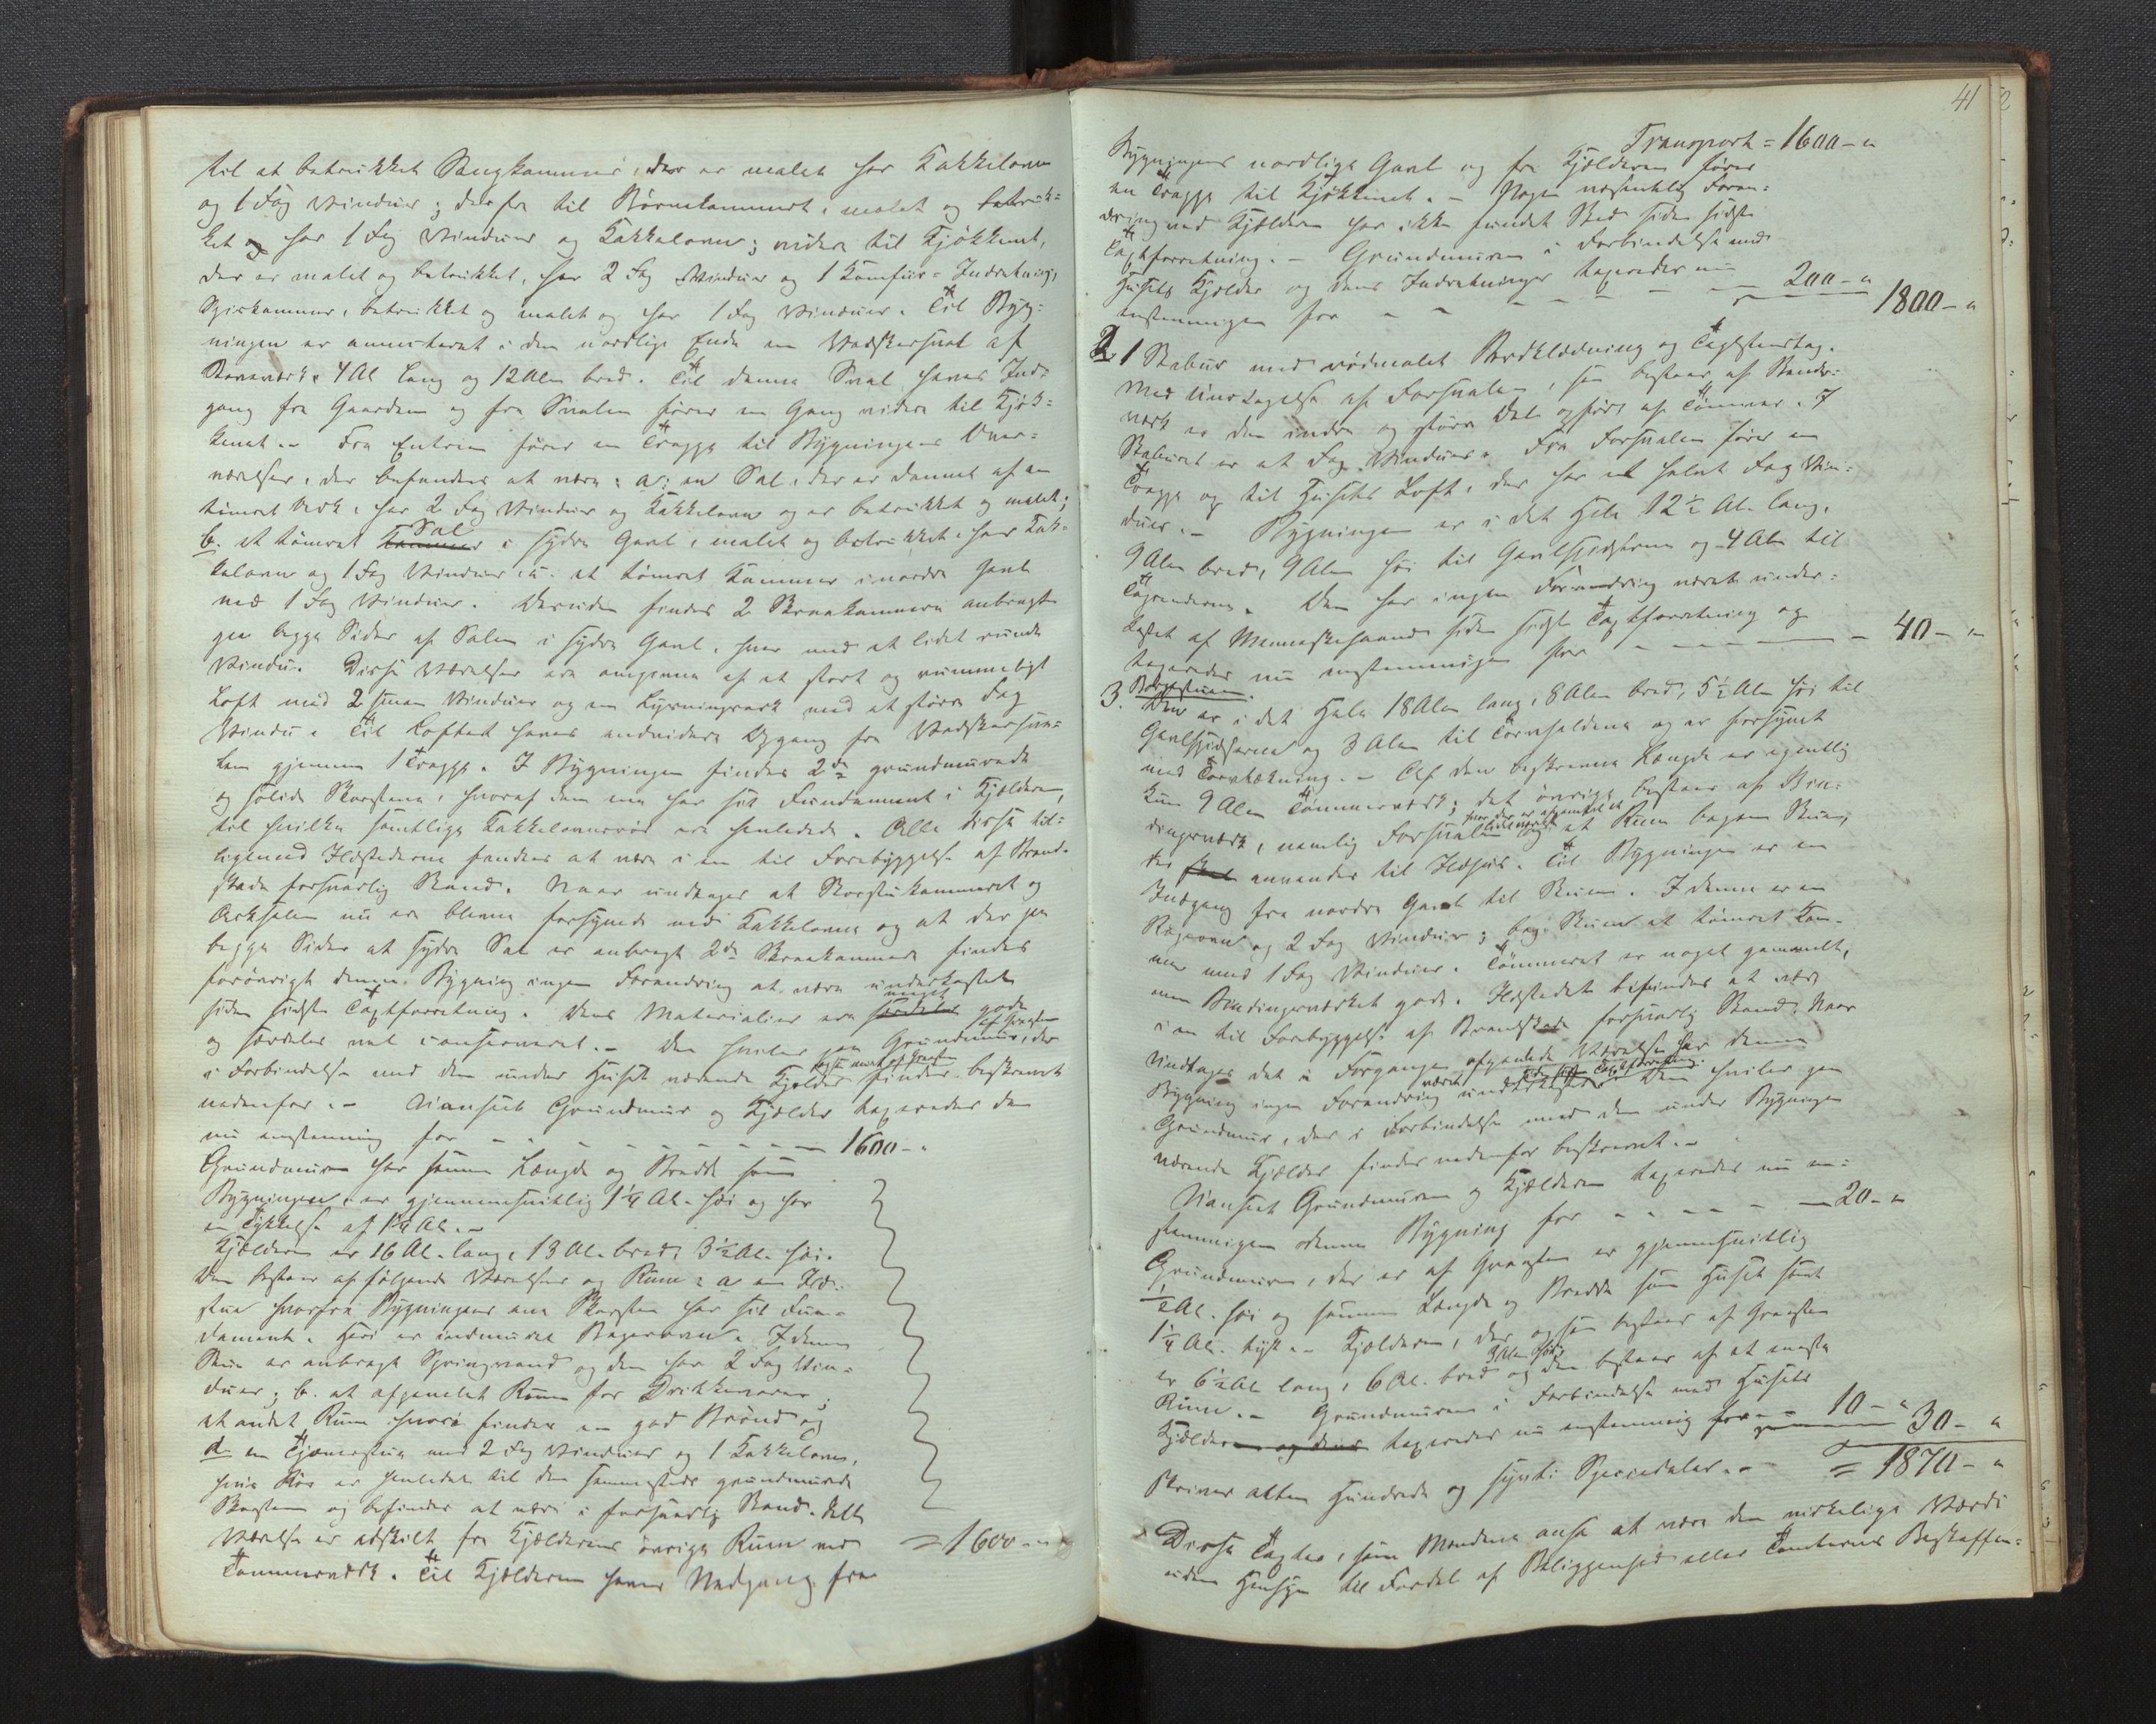 til et betrækket Sengkammer, der er malet har Kakkelovn
og 1 Fag Vinduer; derfra til Børnekammeret, malet og betræk-
ket og har 1 Fag Vinduer og Kakkelovn; videre til Kjøkkenet,
der er malet og betrækket, har 2 Fag Vinduer og 1 Komfür-Indretning,
Spiskammer, betrækket og malet og har 1 Fag Vinduer. Til Byg-
ningen er i den nordlige Ende en Vadskersval af
4 Al lang og 12 Alen bred. Til denne Sval haves Ind-
gang fra Gaarden og fra Svalen fører en Gang videre til Kjøk-
kenet. – Fra Entreen fører en Trappe til Bygningens Over-
værelser, der befindes at være: a, en Sal, der er dannet af en
tømret Ark, har 2 Fag Vinduer og Kakkelovn og er betrækket og malet;
b. et tømret Kammer Sal i søndre Gavl, malet og betrækket, har Kak-
kelovn og 1 Fag Vinduer, c. et tømret Kammer i nordre Gavl
med 1 Fag Vinduer. Desuden findes 2 Skraakammere anbragte
paa begge Sider af Salen i søndre Gavl, hver med et lidet rundt
Vindu. Disse Værelser ere omgivne af et stort og rummeligt
Loft med 2 smaa Vinduer og en med et større Fag
Vindu. Til Loftet haves endvidere Opgang fra Vadskersva-
len gjennem 1 Trappe. I Bygningen findes 2de grundmurede
og solide Skorstene, hvoraf den ene har sit Fundament i Kjælderen,
til hvilke samtlige Kakkelovnsrør ere henledede. Alle disse til-
ligemed Ildstederne fandtes at være i en til Forebyggelse af Brand-
skade forsvarlig Stand. Naar undtages at Skorstenskammeret og
Arksalen nu ere blevne forsynede med Kakkelovne og at der paa
begge Sider at søndre Sal er anbragt 2de Skraakammere findes
forøvrigt denne Bygning ingen Forandring at være underkastet
siden sidste Taxtforretning. Dens Materialier ere særdeles meget gode
og særdeles vel conserveret. – Den hviler paa Grundmuur, af Graasten der
i Forbindelse med den under Huset værende Kjelder findes beskrevet
nedenfor. – Uanseet Grundmuur og Kjælder taxeredes den
nu enstemmig for – – – – – – – – 1600 – "
Grundmuren har samme Længde og Bredde som
Bygningen, er gjennemsnitlig 1¼ Al. høi og har
en Tykkelse af 1¼ Al. –
Kjælderen er 16 Al. lang, 13 Al. bred, 3½ Al. høi.
Den bestaar af følgende Værelser og Rum: a en Ild-
stue hvorfra Bygningens ene Skorsten har sit Fun-
dament. Heri er indmuret Bagerovn. I denne
Stue er anbragt Springvand og den har 2 Fag Vin-
duer; b. et afpanelet Rum for Drikkevarer;
et andet Rum hvori findes en god Brønd og
d en Tjenerstue med 2 Fag Vinduer og 1 Kakkelovn,
hvis Rør er henledet til den sammesteds grundmurede
Skorsten og befindes at være i forsvarlig Stand. Dette
Værelse er adskilt fra Kjælderens øvrige Rum ved
Tømmerværk. Til Kjælderen haves Nedgang fra
= 1600 – "
41
Transport = 1600 – "
Bygningens nordlige Gavl og fra Kjælderen fører
en Trappe til Kjøkkenet. – Nogen væsentlig Foran-
dring ved Kjælderen har ikke fundet Sted siden sidste
Taxtforretning. – Grundmuren i Forbindelse med
Husets Kjælder og dens Indretninger taxeredes nu
enstemmigen for – – – – – – 200 – "
1800 – "
2. 1 Stabur med rødmalet Bordklædning og Taglstenstag.
Med Undtagelse af Forsvalen, som bestaar af Stender-
værk er den indre og større Del opført af Tømmer. I
Staburet er et Fag Vinduer. Fra Forsvalen fører en
Trappe op til Husets Loft, der har et halvt Fag Vin-
duer. – Bygningen er i det Hele 12½ Al. lang,
9 Alen bred, 9 Alen høi til Gavlspidserne og 4 Alen til
Tagrenderne. Den har ingen Forandring været under-
kastet af Menneskehaand siden sidste Taxtforretning og
taxeredes nu enstemmigen for – – – – – 40 – "
3. Borgestuen.
Den er i det Hele 18 Alen lang, 8 Alen bred, 5½ Alen høi til
Gavlspidserne og 3 Alen til Torvholdene og er forsynet
med Torvtækning. – Af den beskrevne Længde er egentlig
kun 9 Alen Tømmerværk; det øvrige bestaar af Bin-
dingsværk, nemlig Forsvalen og et Rum bagom Stuen,
der anvendes til Ildhus. Til Bygningen er en
Indgang fra nordre Gavl til Stuen. I denne er en
Bagerovn og 2 Fag Vinduer; bag Stuen et tømret Kam-
mer med 1 Fag Vinduer. Tømmeret er noget gammelt,
men Bindingsværket godt. Ildstedet befindes at være
i en til Forbyggelse af Brandskade forsvarlig Stand. Naar
undtages det i Forgangen afpanelede Værelse har denne
Bygning ingen Forandring været underkastet siden sidste Taxtforretning. Den hviler paa
Grundmuur, der i Forbindelse med den under Bygningen
værende Kjælder findes nedenfor beskrevet. –
Uanseet Grundmuren og Kjælderen taxeredes nu en-
stemmigen denne Bygning for – – – – – 20 – "
Grundmuren, der er af Graasten er gjennemsnitlig
½ Al. høi og samme Længde og Bredde som Huset samt
1¼ Al. tyk. – Kjælderen, der ogsaa bestaar af Graasten
er 6½ Al. lang, 6 Al. bred og 3 Alen høi den bestaar af et eneste
Rum. – Grundmuren i Forbindelse med Husets
Kjælder og dens taxeredes nu enstemmig for – – 10 – "
30 – "
Skriver atten Hundrede og sytti Speciedaler. – = 1870 – "
Disse Taxter, som Mændene ansee at være den virkelige Værdi
uden Hensyn til Fordel af Beliggenhed eller Tomternes Beskaffen-